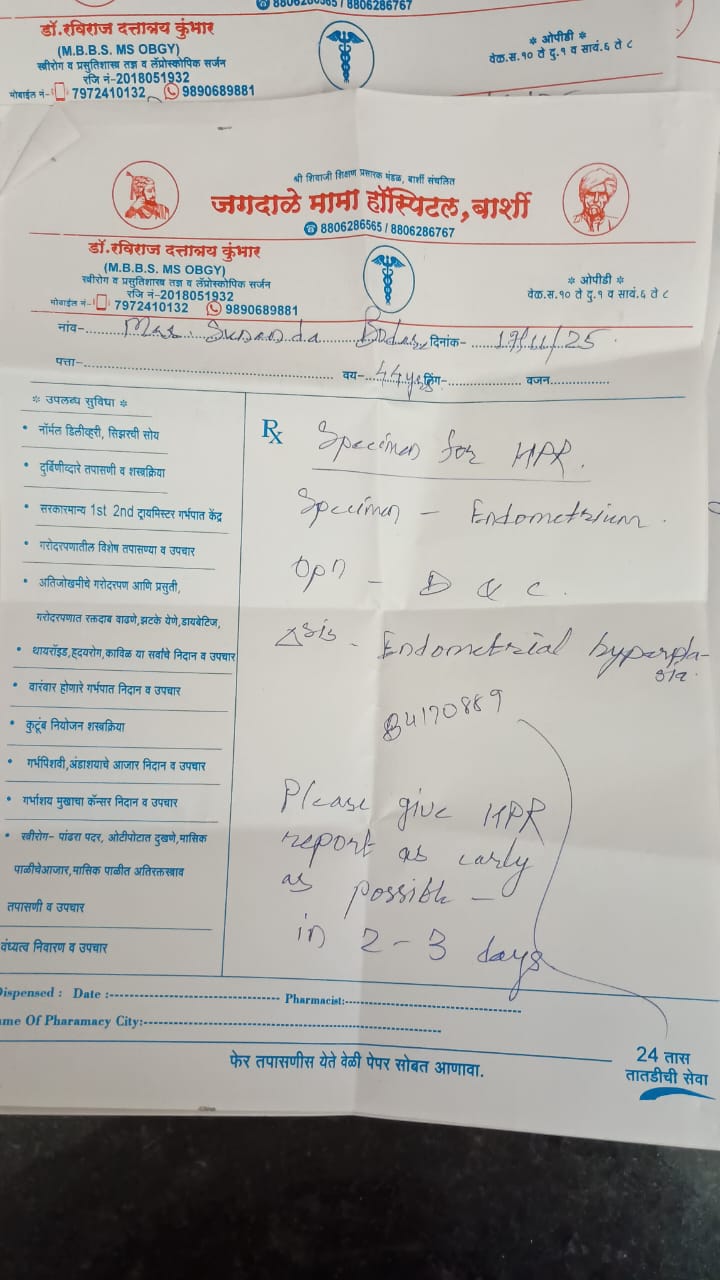 8806286565 / 8806286767
डॉ.रविराज दत्तात्रय कुंभार
(M.B.B.S. MS OBGY)
स्त्रीरोग व प्रसुतिशास्त्र तज्ञ व लॅप्रोस्कोपिक सर्जन
रजि नं-2018051932
मोबाईल नं- 7972410132 9890689881
* ओपीडी *
वेळ.स.१० ते दु.१ व सायं.६ ते ८
श्री शिवाजी शिक्षण प्रसारक मंडळ, बार्शी संचलित
जगदाळे मामा हॉस्पिटल,बार्शी
8806286565 / 8806286767
डॉ.रविराज दत्तात्रय कुंभार
(M.B.B.S. MS OBGY)
स्त्रीरोग व प्रसुतिशास्त्र तज्ञ व लॅप्रोस्कोपिक सर्जन
रजि नं-2018051932
मोबाईल नं- 7972410132 9890689881
* ओपीडी *
वेळ.स.१० ते दु.१ व सायं.६ ते ८
नांव- Mrs. Sunanda दिनांक- 17/11/25
पत्ता- वय- 44yrs लिंग- वजन
* उपलब्ध सुविधा *
• नॉर्मल डिलीव्हरी, सिझरची सोय
• दुर्बिणीव्दारे तपासणी व शस्त्रक्रिया
• सरकारमान्य 1st 2nd ट्रायमिस्टर गर्भपात केंद्र
• गरोदरपणातील विशेष तपासण्या व उपचार
• अतिजोखमीचे गरोदरपण आणि प्रसुती,
गरोदरपणात रक्तदाब वाढणे,झटके येणे,डायबेटिज,
• थायरॉइड,ह्रदयरोग,काविळ या सर्वांचे निदान व उपचार
• वारंवार होणारे गर्भपात निदान व उपचार
• कुटूंब नियोजन शस्त्रक्रिया
• गर्भपिशवी,अंडाशयाचे आजार निदान व उपचार
• गर्भाशय मुखाचा कॅन्सर निदान व उपचार
• स्त्रीरोग- पांढरा पदर, ओटीपोटात दुखणे,मासिक
पाळीचेआजार,मासिक पाळीत अतिरक्तस्राव
तपासणी व उपचार
वंध्यत्व निवारण व उपचार
Rx Specimen for HPR.
Specimen - Endometrium.
Opn - D & C.
Δsis - Endometrial hyperpla-
sia
84170889
Please give HPR
report as early
as possible -
in 2-3 days
Dispensed : Date :- Pharmacist:-
me Of Pharamacy City:-
फेर तपासणीस येते वेळी पेपर सोबत आणावा.
24 तास
तातडीची सेवा